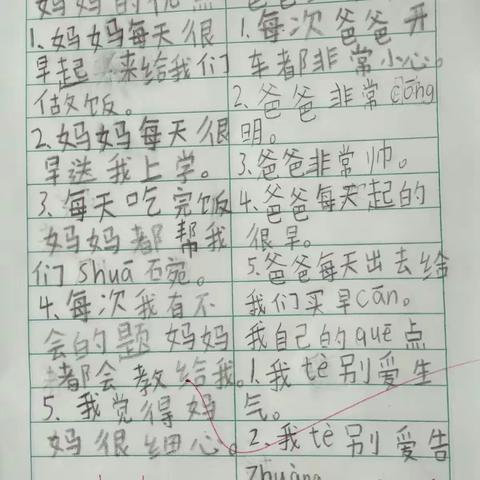 妈妈的优点
1.妈妈每天很
早起 来给我们
做饭。
2.妈妈每天很
早送我上学。
3.每天吃完饭
妈妈都帮我
们shuā石宛。
4.每次我有不
会的题妈妈
都会教给我。
5.我觉得妈
妈很细心。
1.每次爸爸开
车都非常小心。
2.爸爸非常cōng
明。
3.爸爸非常帅。
4.爸爸每天起的
很早。
5.爸爸每天出去给
我们买早cān。
我自己的quē点
1.我tè别爱生
气。
2.我tè别爱告
zhuàng